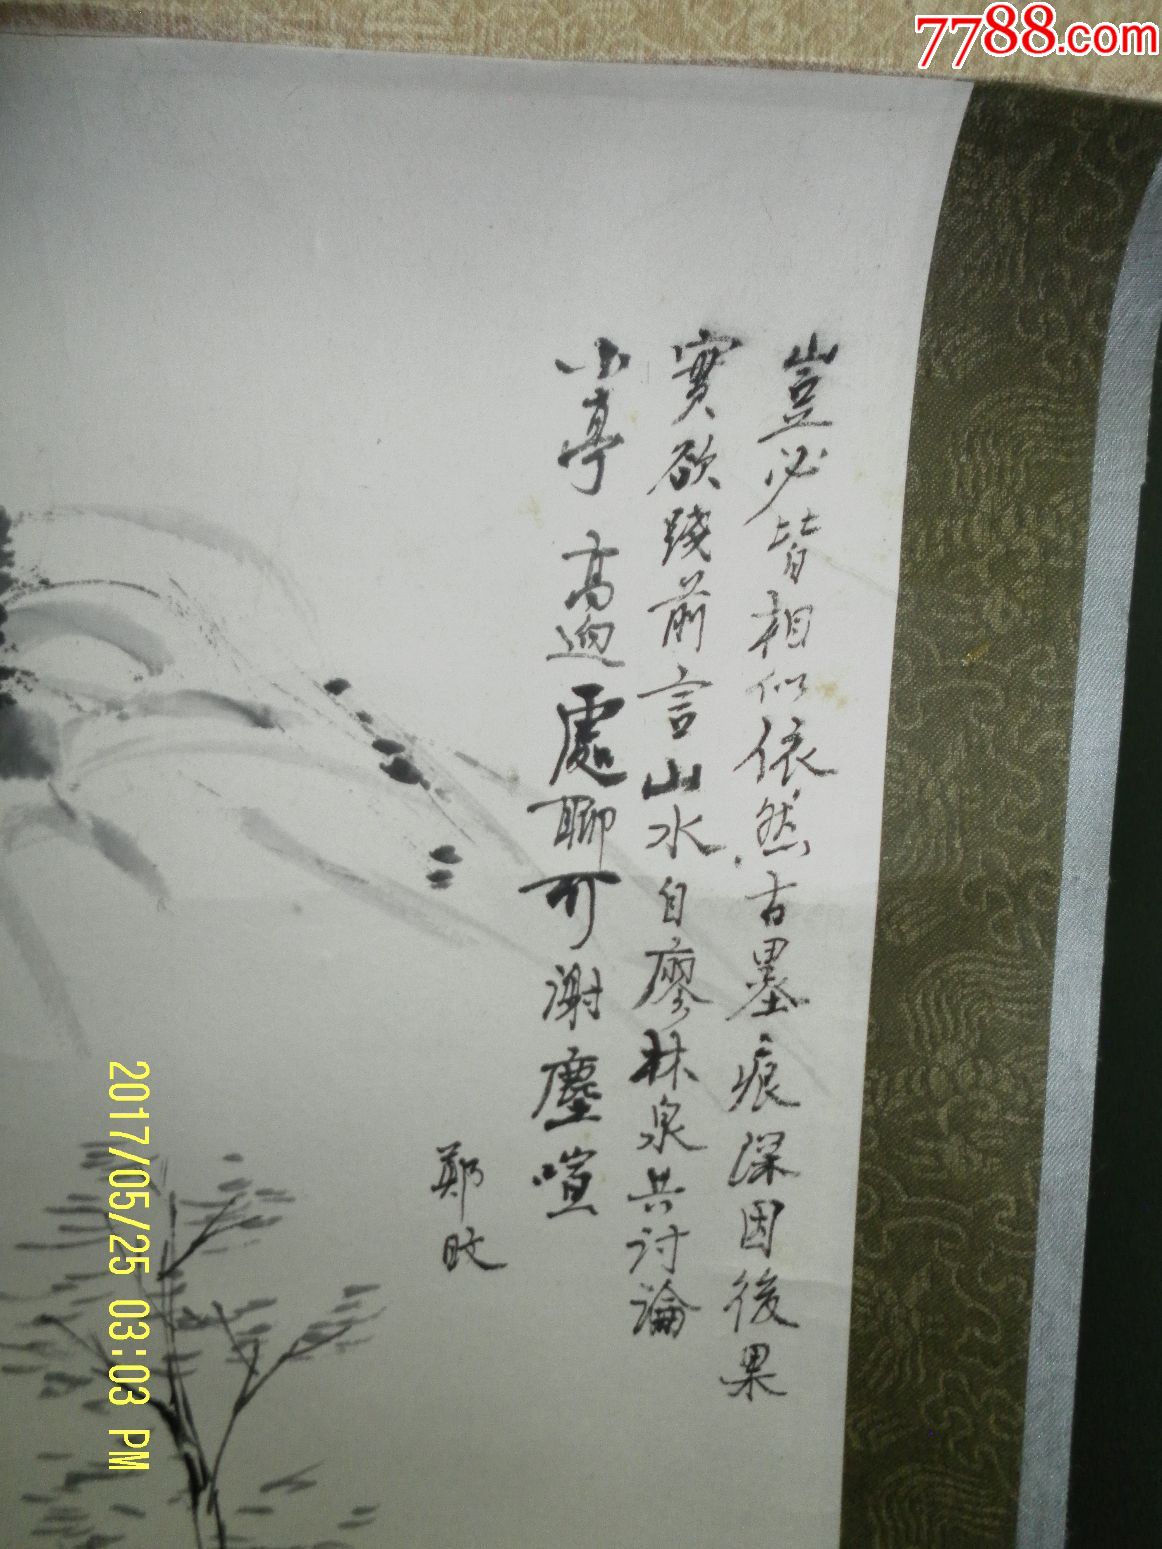 7788.com
豈必皆相似依然古墨痕深因後果
實欲踐前言山水自廖林泉共討論
小亭高迥處聊可謝塵喧
鄭旼
2017/05/25 03:03 PM